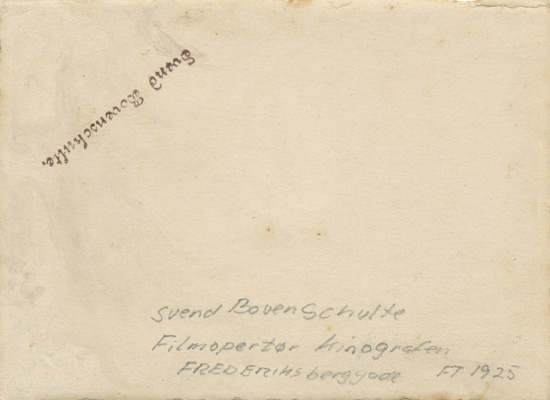 Svend Bovenschulte.
Svend BovenSchulte
Filmopertør Kinografen
FREDERIKsberggade FT 1925